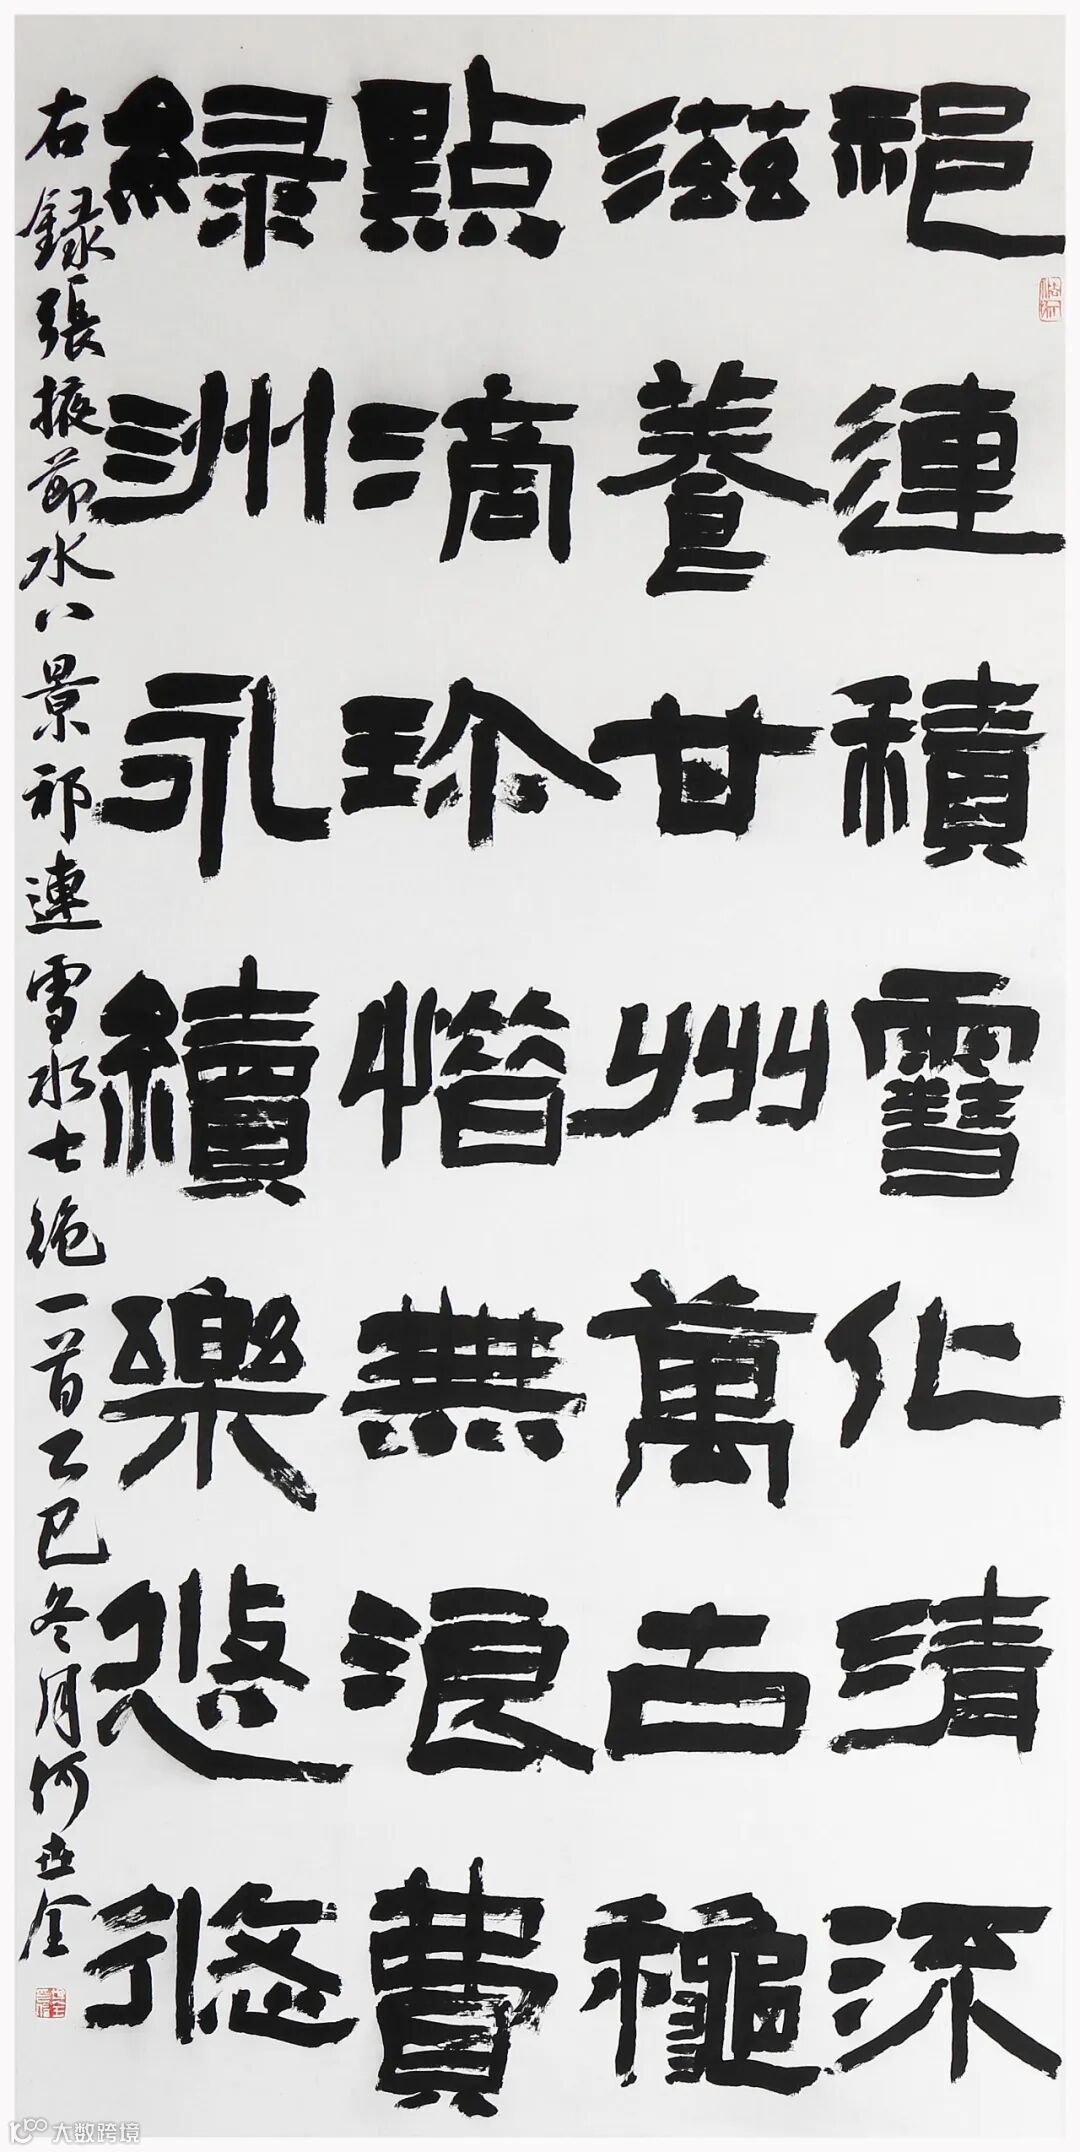 祁連積雪化清流
滋養甘州萬古龝
點滴珍惜無浪費
綠洲永續樂悠悠
右録張掖節水八景祁連雪水七絶一首乙巳冬月何世全
大数跨境